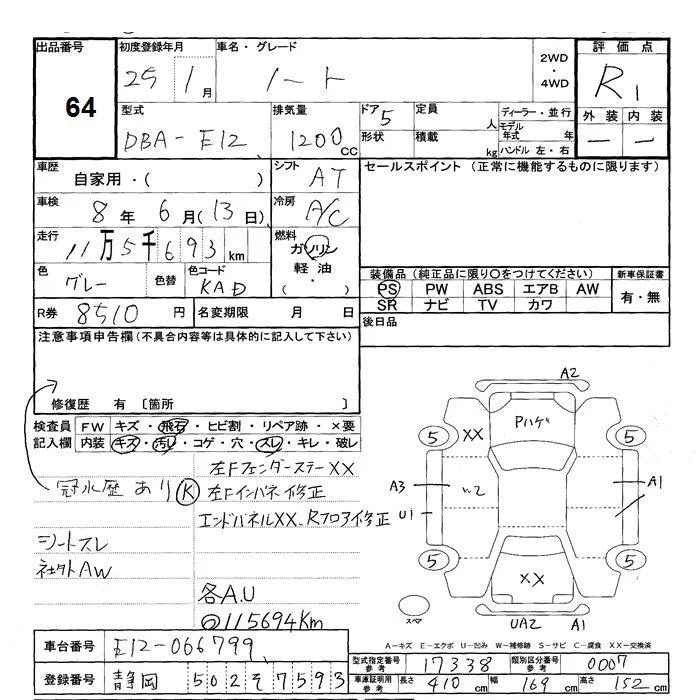 出品番号 初度登録年月 車名・グレード 2WD・4WD 評価点
64 25 1月 ノート R1
外装 内装
— —
型式 排気量 ドア 定員 ディーラー・並行
DBA-E12 1200cc 5 人 モデル年式 年
形状 積載 kg ハンドル 左・右
車歴 シフト セールスポイント (正常に機能するものに限ります)
自家用・( ) AT
車検 冷房
8年6月(13日) A/C
走行 燃料
11万5千693km ガソリン
軽油
( ・ )
色 色替 色コード 装備品 (純正品に限り○をつけてください) 新車保証書
グレー KAD PS PW ABS エアB AW 有・無
SR ナビ TV カワ
R券 8510円 名変期限 月 日 後日品
注意事項申告欄 (不具合内容等は具体的に記入して下さい)
修復歴 有 〔箇所 〕
検査員 FW キズ・飛石・ヒビ割・リペア跡・×要
記入欄 内装 キズ・汚レ・コゲ・穴・スレ・キレ・破レ
左Fフェンダーステー XX
冠水歴 あり K 左Fインパネ修正
エンドパネルXX、Rフロア修正
シートスレ
社外AW
各A.U
@115694Km
A2
XX Pハゲ
5 5
A3 A1
U1
5 5
XX
スペア
UA2 A1
A-キズ E-エクボ U-凹み W-補修跡 S-サビ C-腐食 XX-交換済
車台番号 E12-066799
型式指定番号 参考 17338 類別区分番号 参考 0007
登録番号 静岡 502 そ 7593
車庫証明用 参考 長さ 410cm 幅 169cm 高さ 152cm